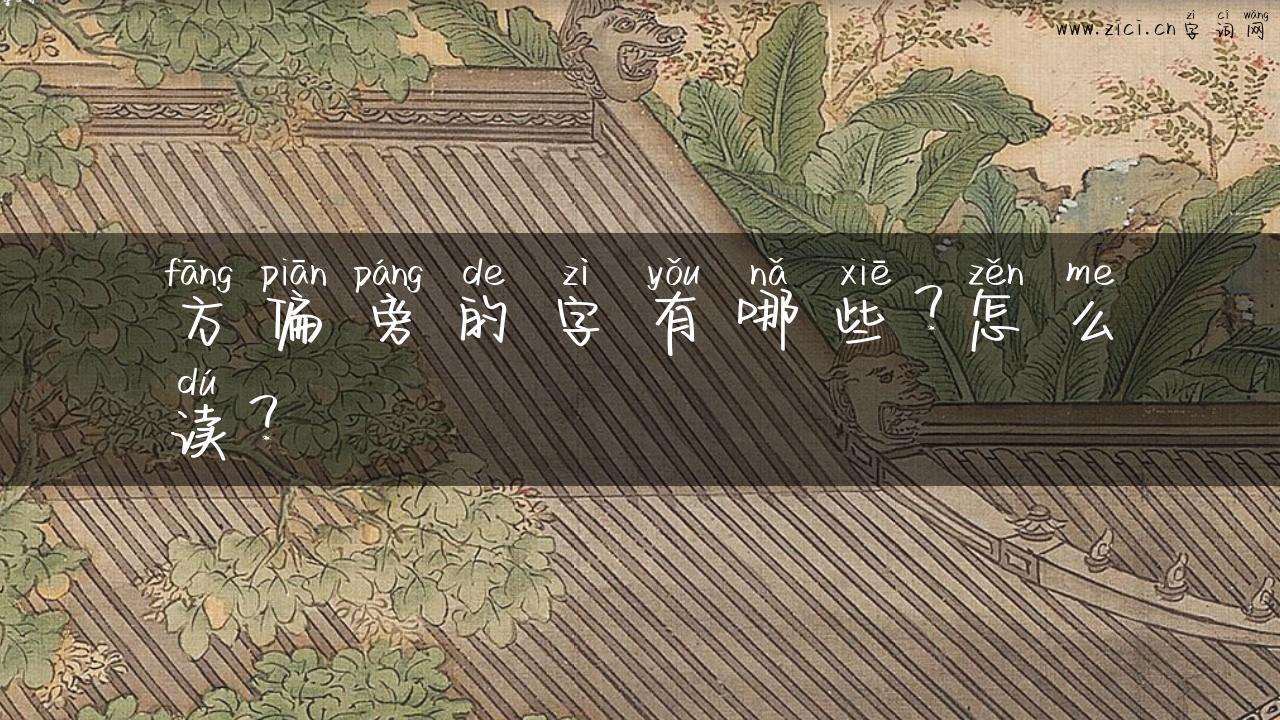 zì cí wǎng
www.zici.cn 字词网
fāng piān páng de zì yǒu nǎ xiē zěn me
方偏旁的字有哪些？怎么
dú
读？